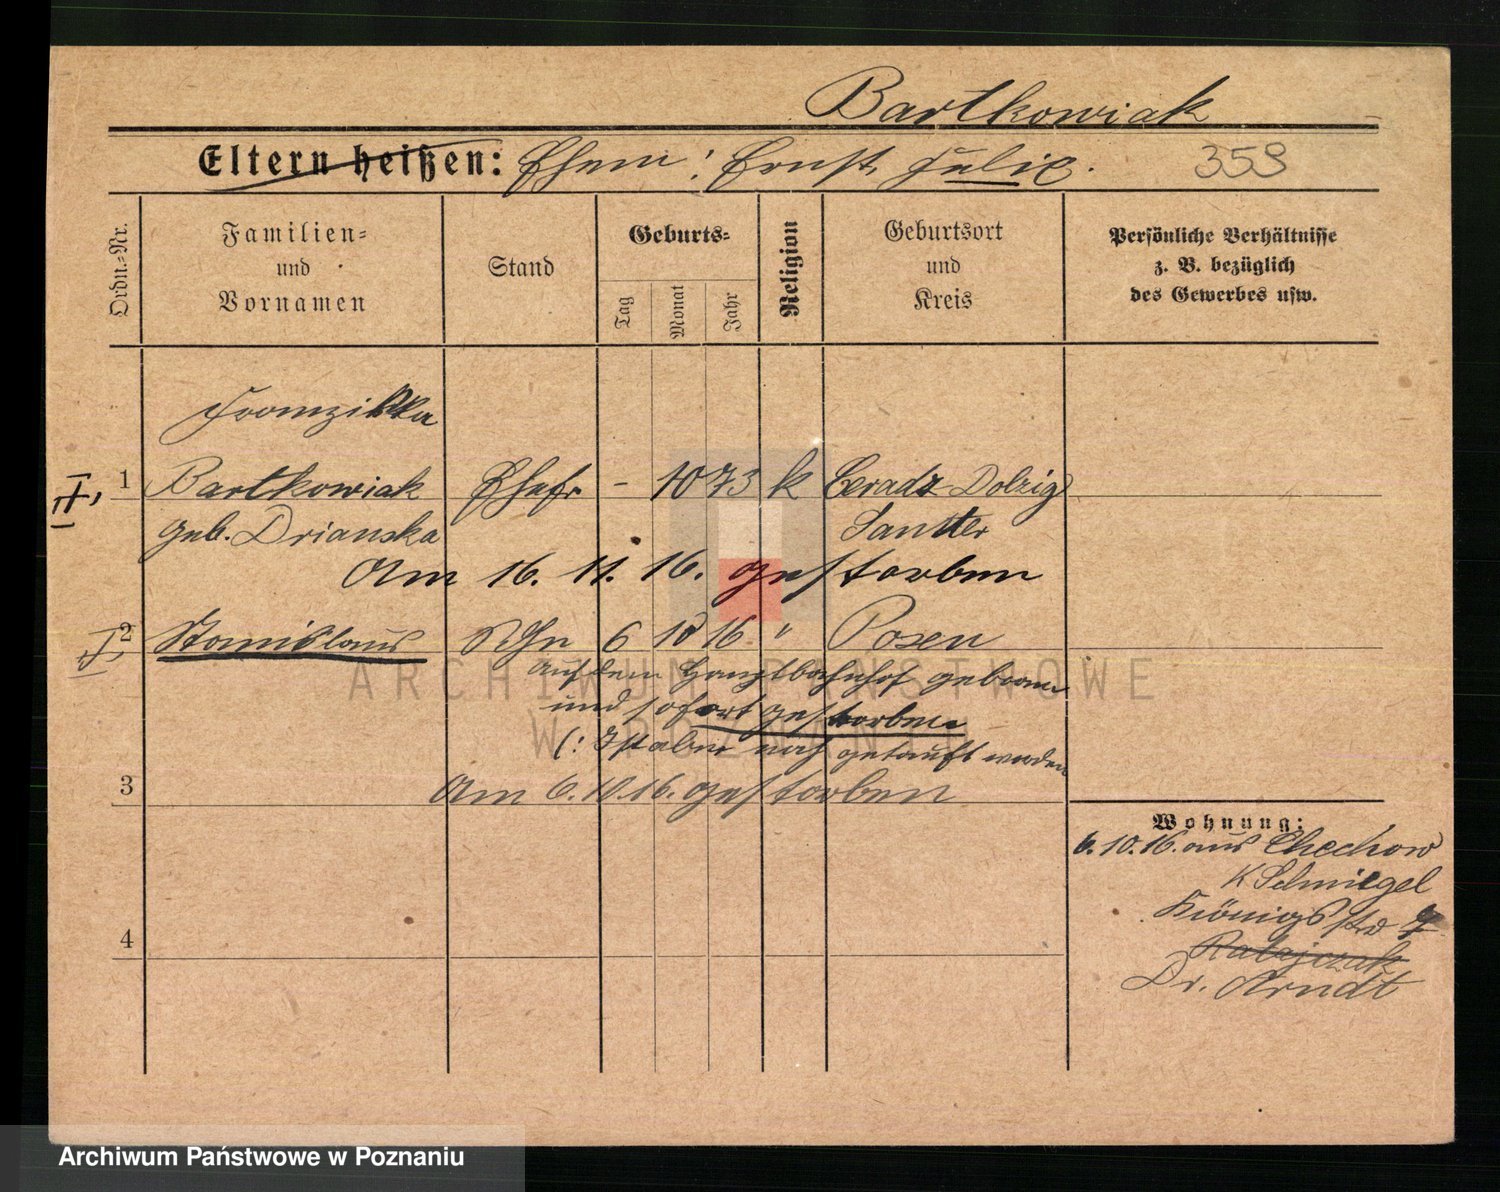 Bartkowiak
Eltern heißen: Ehem: Ernst Julie. 359
Ordn.-Nr.
Familien-
und
Vornamen
Stand
Geburts-
Tag
Monat
Jahr
Religion
Geburtsort
und
Kreis
Persönliche Verhältnisse
z. B. bezüglich
des Gewerbes usw.
Franziska
II, 1 Bartkowiak Ehefr - 10 73 k Ceradz Dolzig
geb. Drianska Samter
Am 16. 11. 16. gestorben
I, 2 Stanislaus Shn 6 10 16 " Posen
auf dem Hauptbahnhof geboren
und sofort gestorben
(: Ist aber noch getauft worden
3 Am 6.10.16. gestorben
Wohnung:
6.10.16. aus Chechow
K Schmiegel
4 Königsstr
Ratajczak
Dr. Arndt
ARCHIWUM PAŃSTWOWE
W POZNANIU
Archiwum Państwowe w Poznaniu